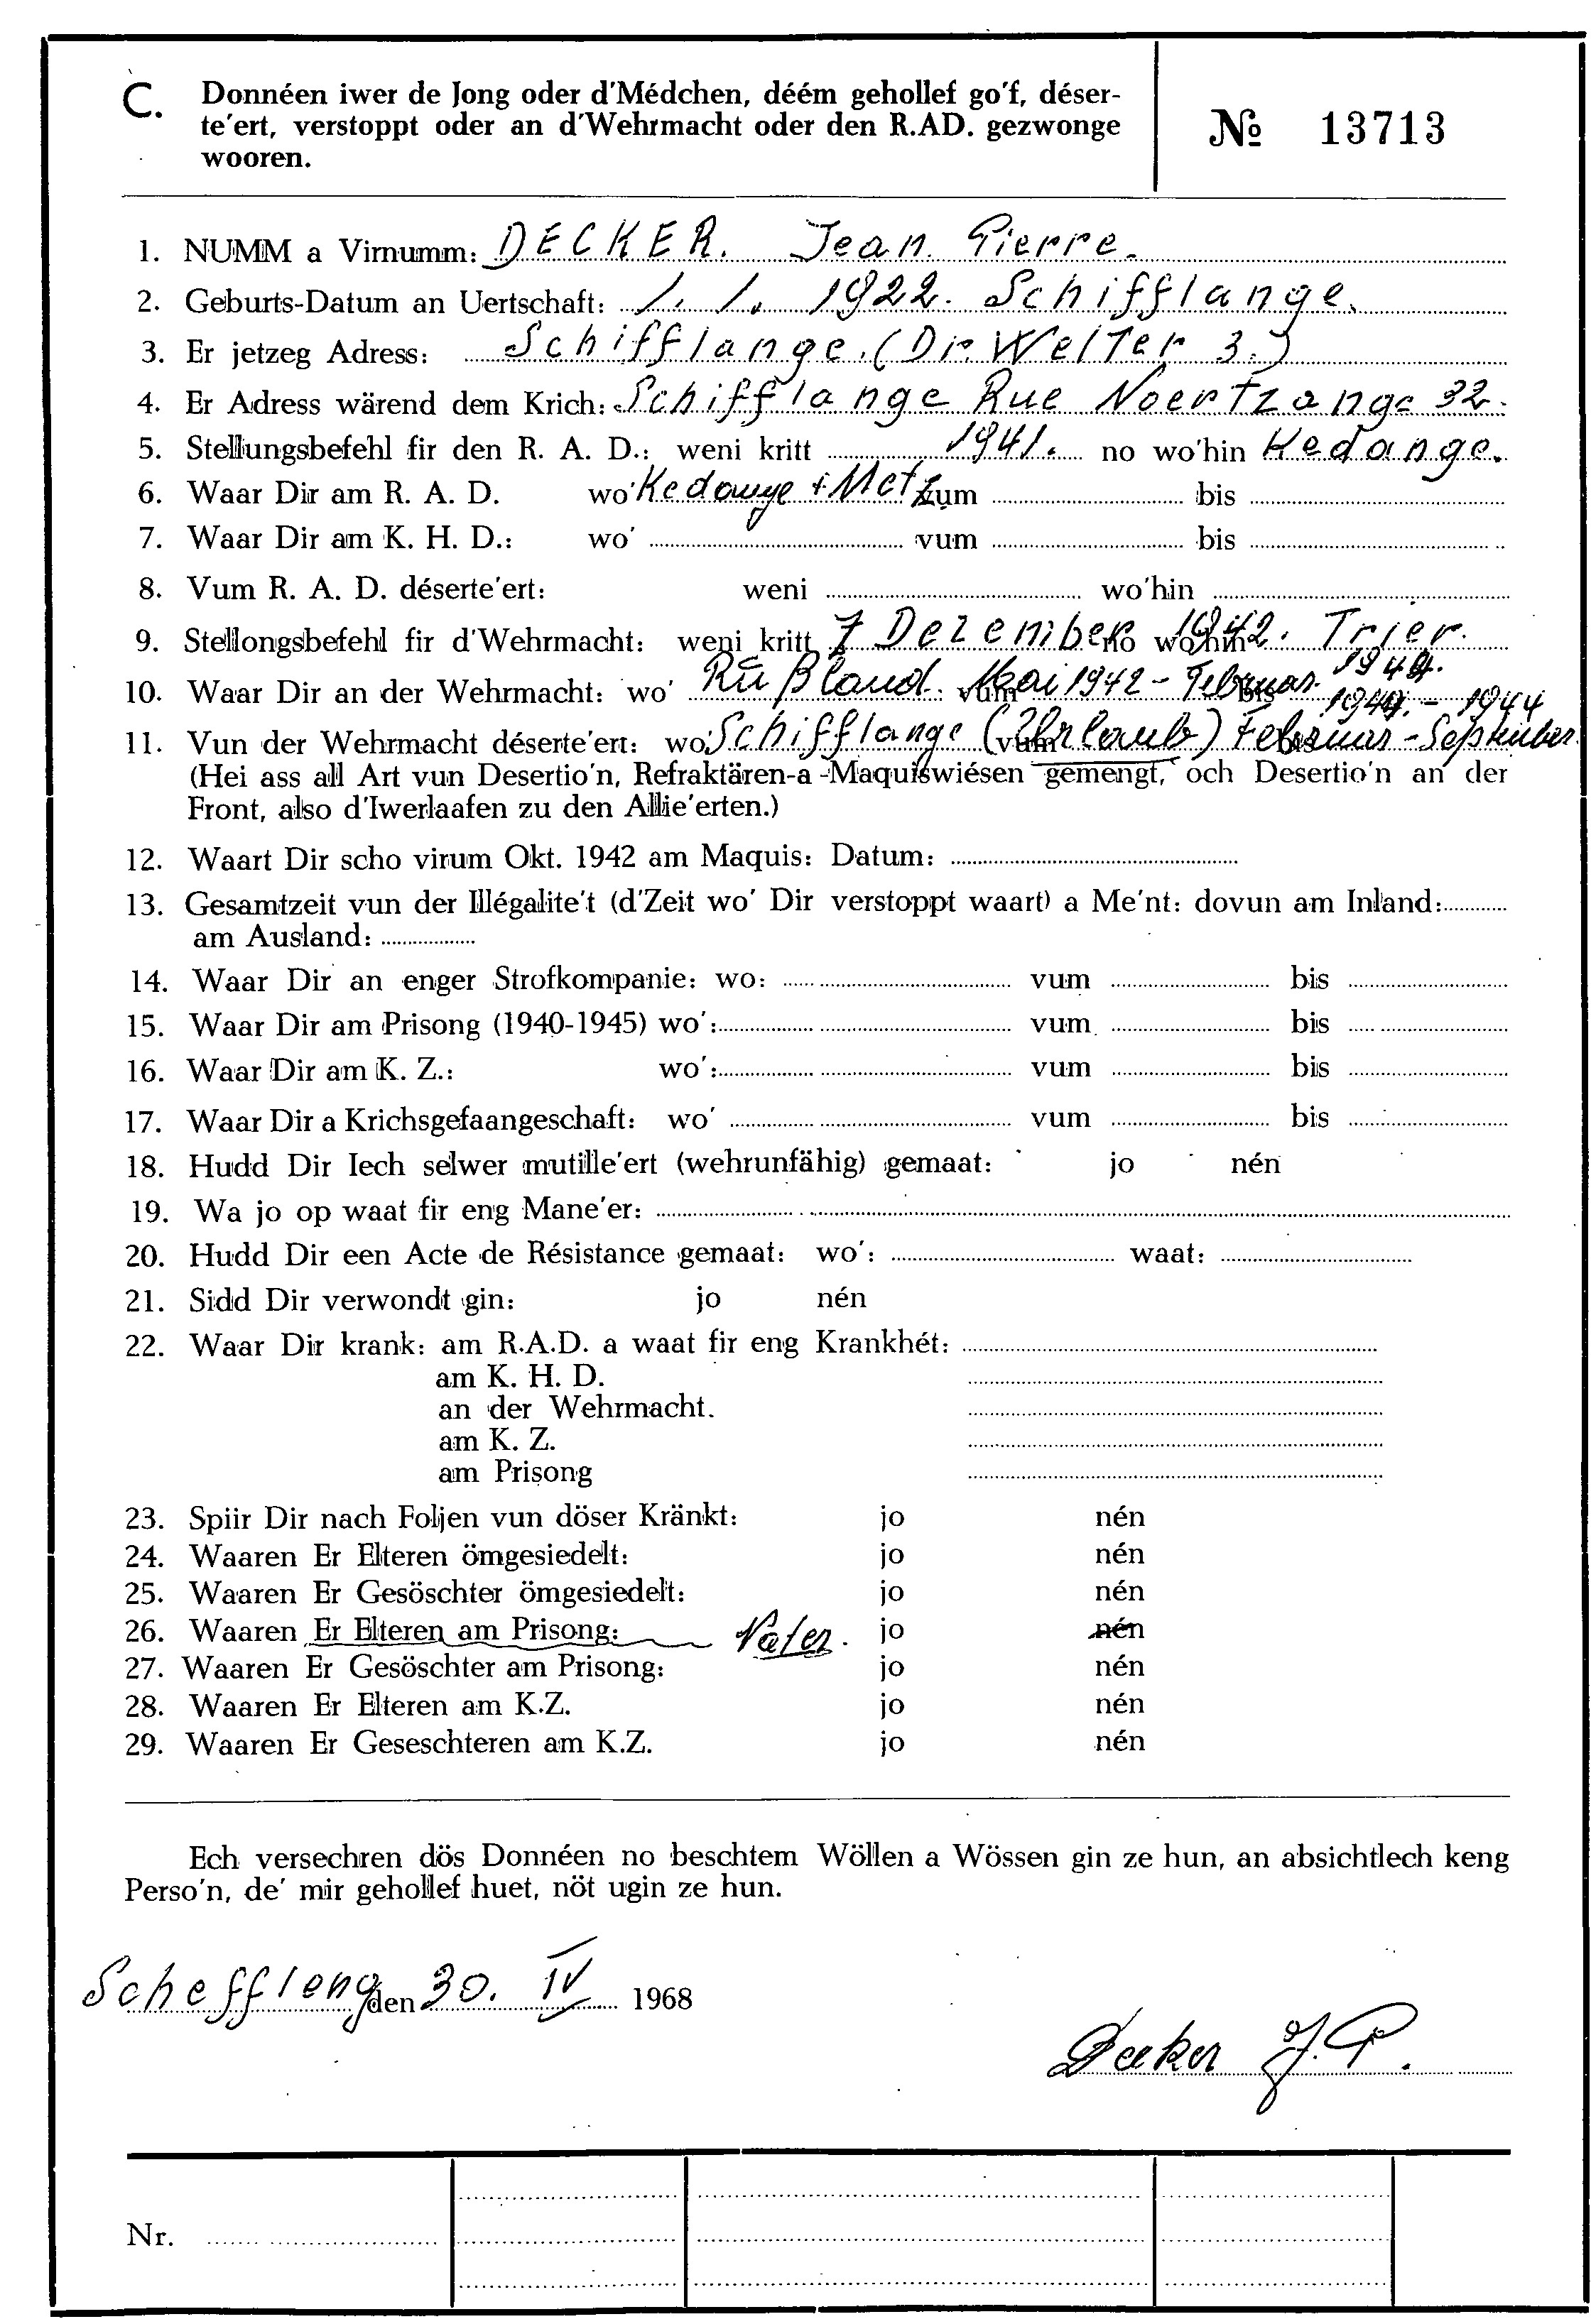 C. Donnéen iwer de Jong oder d'Médchen, déém gehollef go'f, déser-
te'ert, verstoppt oder an d'Wehrmacht oder den R.AD. gezwonge
wooren.
№ 13713
1. NUMM a Virnumm: DECKER. Jean Pierre.
2. Geburts-Datum an Uertschaft: 1. 1. 1922. Schifflange.
3. Er jetzeg Adress: Schifflange. (Dr. Welter 3.)
4. Er Adress wärend dem Krich: Schifflange Rue Noertzange 32.
5. Stellungsbefehl fir den R. A. D.: weni kritt 1941. no wo'hin Kedange.
6. Waar Dir am R. A. D. wo' Kedange + Metz vum bis
7. Waar Dir am K. H. D.: wo' vum bis
8. Vum R. A. D. déserte'ert: weni wo'hin
9. Stellongsbefehl fir d'Wehrmacht: weni kritt 7 Dezember no wo'hin 1942. Trier.
10. Waar Dir an der Wehrmacht: wo' Rußland vum Mai 1942 - bis Februar. 1944.
1944. - 1944
11. Vun der Wehrmacht déserte'ert: wo' Schifflange vum (Uhrlaub) bis Februar - September
(Hei ass all Art vun Desertio'n, Refraktären-a -Maquiswiésen gemengt, och Desertio'n an der
Front, also d'Iwerlaafen zu den Allie'erten.)
12. Waart Dir scho virum Okt. 1942 am Maquis: Datum:
13. Gesamtzeit vun der Illégalite't (d'Zeit wo' Dir verstoppt waart) a Me'nt: dovun am Inland:
am Ausland:
14. Waar Dir an enger Strofkompanie: wo: vum bis
15. Waar Dir am Prisong (1940-1945) wo': vum bis
16. Waar Dir am K. Z.: wo': vum bis
17. Waar Dir a Krichsgefaangeschaft: wo' vum bis
18. Hudd Dir Iech selwer mutille'ert (wehrunfähig) gemaat: jo nén
19. Wa jo op waat fir eng Mane'er:
20. Hudd Dir een Acte de Résistance gemaat: wo': waat:
21. Sidd Dir verwondt gin: jo nén
22. Waar Dir krank: am R.A.D. a waat fir eng Krankhét:
am K. H. D.
an der Wehrmacht.
am K. Z.
am Prisong
23. Spiir Dir nach Foljen vun döser Kränkt: jo nén
24. Waaren Er Elteren ömgesiedelt: jo nén
25. Waaren Er Gesöschter ömgesiedelt: jo nén
26. Waaren Er Elteren am Prisong: Vater. jo nén
27. Waaren Er Gesöschter am Prisong: jo nén
28. Waaren Er Elteren am K.Z. jo nén
29. Waaren Er Geseschteren am K.Z. jo nén
Ech versechren dös Donnéen no beschtem Wöllen a Wössen gin ze hun, an absichtlech keng
Perso'n, de' mir gehollef huet, nöt ugin ze hun.
Scheffleng den 30. IV 1968
Decker J. P.
Nr.